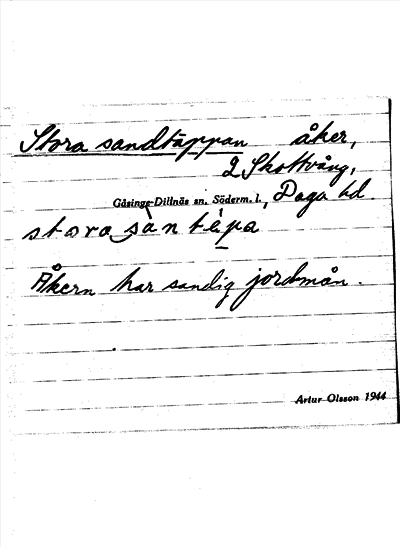 Stora sandtäppan åker,
2 Skottvång,
Gåsinge-Dillnäs sn. Söderm. l., Daga hd
stora sàn tépa
Åkern har sandig jordmån.
Artur Olsson 1944